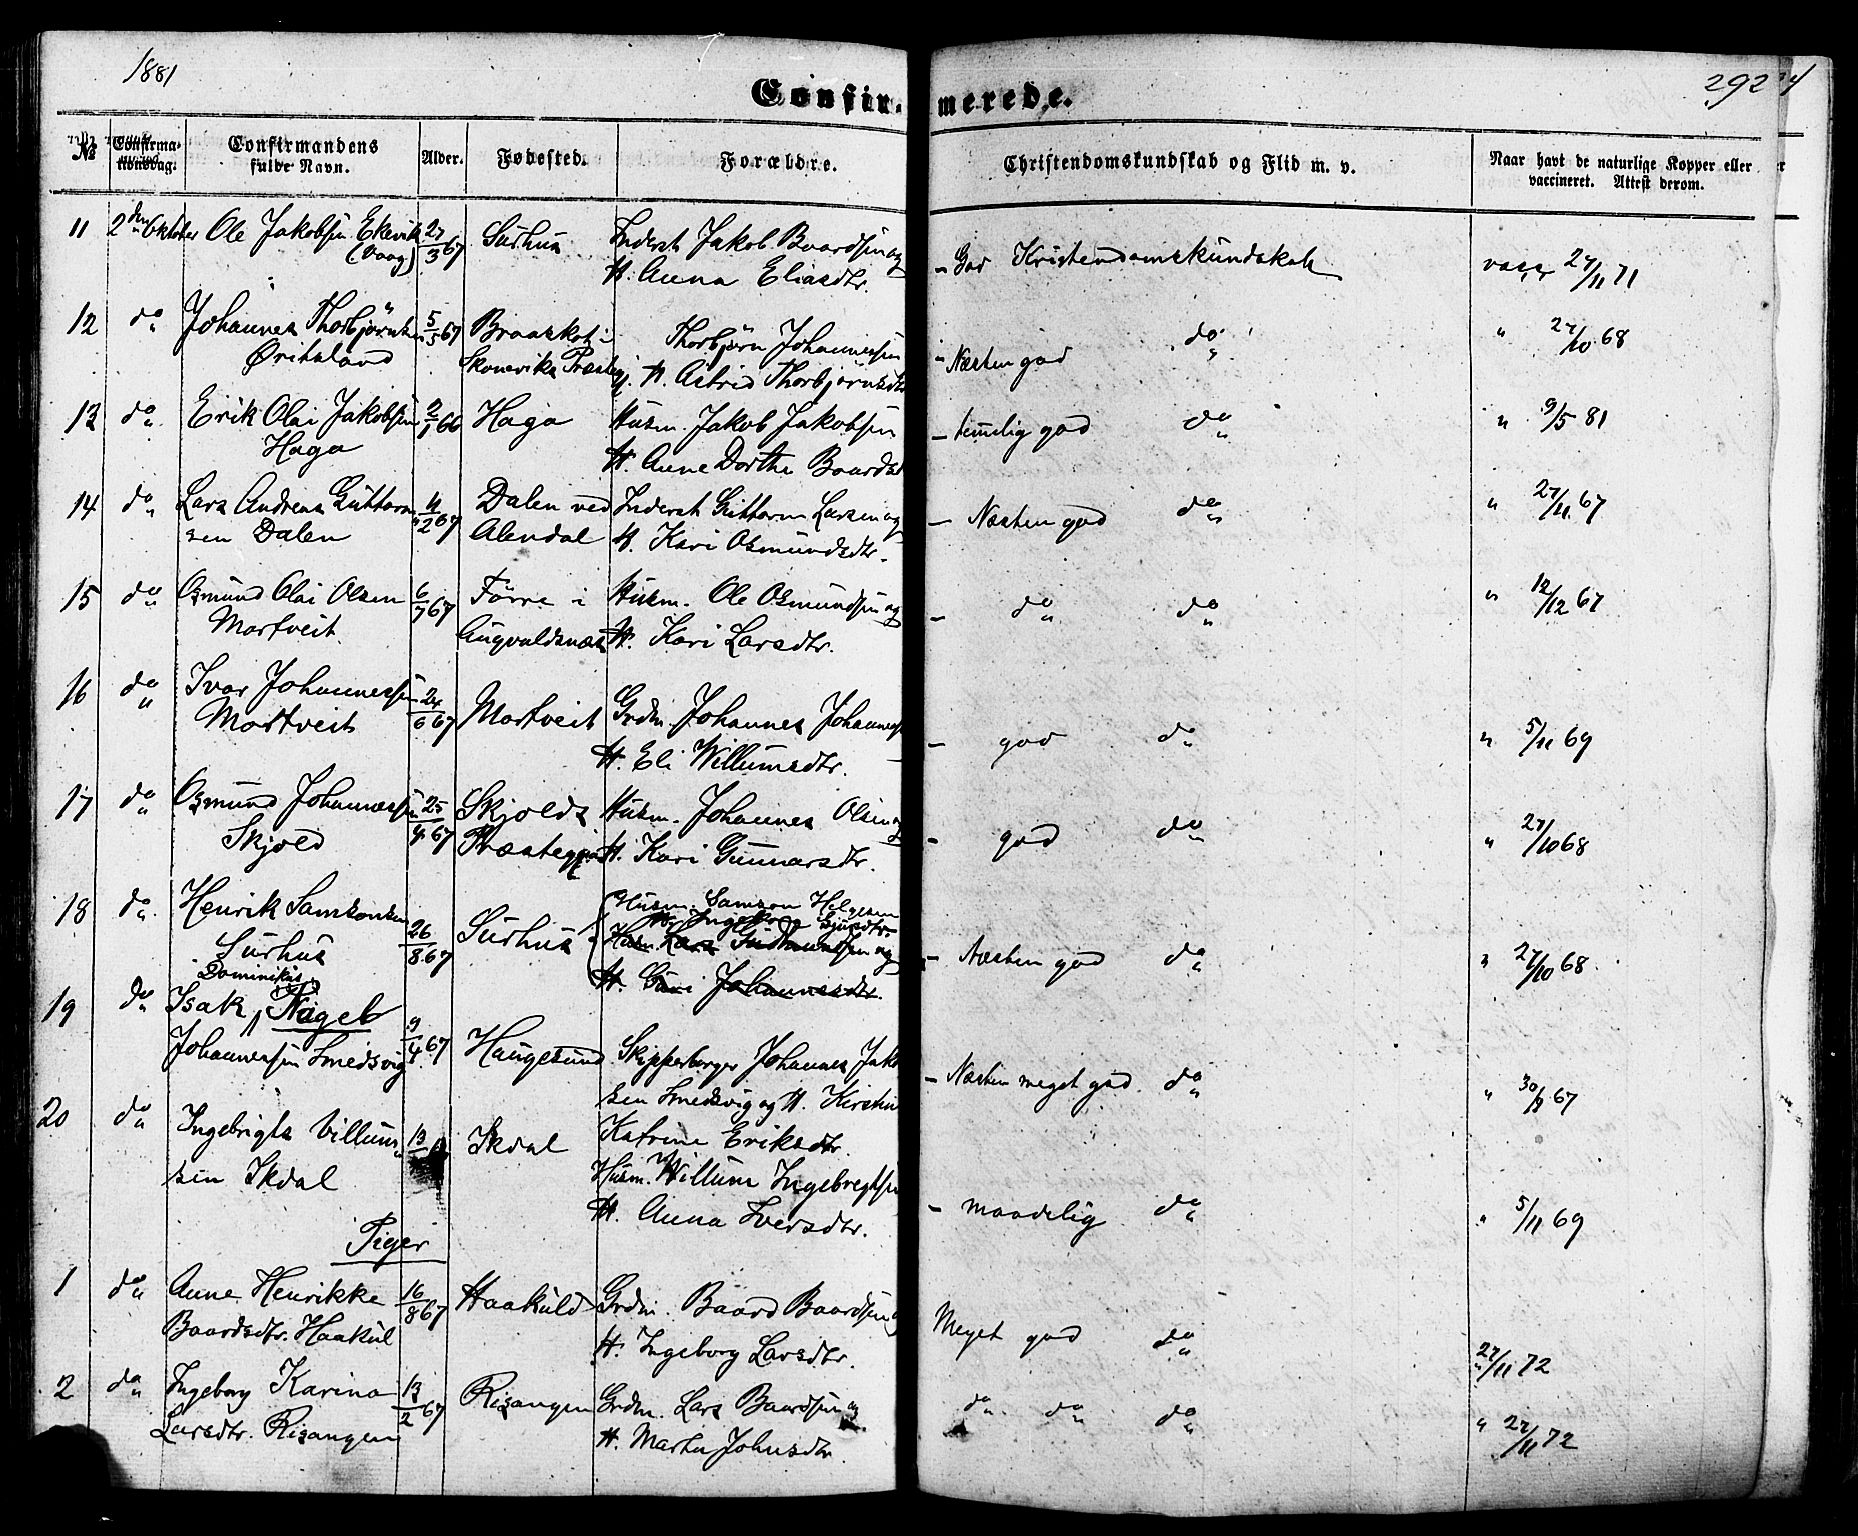 1881
292
Confir- merede.
№ Confirmationsdag. Confirmandens fulde Navn. Alder. Fødested. Forældre. Christendomskundskab og Flid m. v. Naar havt de naturlige Kopper eller vaccineret. Attest derom.
11 2den Oktober Ole Jakobsen Ekevik 27/3 67 Sørhus Inderst Jakob Baardsen og - God Kristendomskundskab vacc. 27/11 71
(Vaag) H. Anna Eliasdtr.
12 do Johannes Thorbjørnsen 5/5 67 Braasket i Thorbjørn Johannessen - Næsten god do " 27/10 68
Øritsland Skoneviks Præstegj. H. Astrid Thorbjørnsdtr
13 do Erik Olai Jakobsen 2/1 66 Haga Husm. Jakob Jakobsen - temelig god do " 9/5 81
Haga H. Anne Dorthe Baardsd
14 do Lars Andreas Guttorm 4/2 67 Dalen ved Inderst Guttorm Larsen og - Næsten god do " 27/11 67
sen Dalen Alendal H. Kari Osmundsdtr.
15 do Osmund Olai Olsen 6/7 67 Førre i Husm. Ole Osmundsen og - do do " 12/12 67
Mortveit. Augvaldsnæs H. Kari Larsdtr.
16 do Ivar Johannessen 24/6 67 Mortveit Grdm. Johannes Johanness - god do " 5/11 69
Mortveit H. Eli Willumsdtr.
17 do Osmund Johannessen 25/4 67 Skjolds Husm. Johannes Olsen og - god do " 27/10 68
Skjold Præstegj. H. Kari Gunnarsdtr.
18 do Henrik Samsonsen 26/8 67 Sørhus Husm. Samson Helgesen - Næsten god do " 27/10 68
Sørhus H. Ingeborg Sjursdtr.
Husm. Lars Gudmundsen og
H. Guri Johannesdtr.
Dominikus
19 do Isak Nagel 9/4 67 Haugesund Skipperborger Johannes Jako - Næsten meget god do " 30/9 67
Johannessen Smedsvig sen Smedsvig og H. Kirstine
Katrine Eriksdtr.
20 do Ingebrigt Villum 13 Ikdal Husm. Willum Ingebregtsen - maadelig do " 5/11 69
sen Ikdal H. Anna Iversdtr.
Piger
1 do Anne Henrikke 16/8 67 Haakuld Grdm. Baard Baardsen og Meget god do 27/11 72
Baardsdtr. Haakul H. Ingeborg Larsdtr.
2 do Ingeborg Karina 13/2 67 Risangen Grdm. Lars Baardsen og do do do " 27/11 72
Larsdtr. Risangen H. Marta Johnsdtr